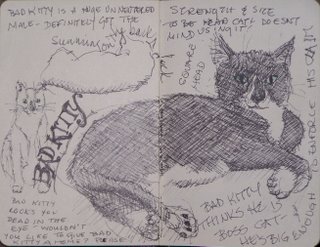 BAD KITTY IS A HUGE UNNEUTERED
MALE - DEFINITELY GOT THE
BAD KITTY
BAD KITTY
LOOKS YOU
DEAD IN THE
EYE "WOULDN'T
YOU LIKE TO GIVE BAD
KITTY A HOME? PLEASE"
STRENGTH & SIZE
TO BE HEAD CAT & DOESN'T
MIND USING IT
SQUARE
HEAD
BAD KITTY
THINKS HE IS
BOSS CAT.
HE'S BIG ENOUGH TO ENFORCE HIS CLAIM